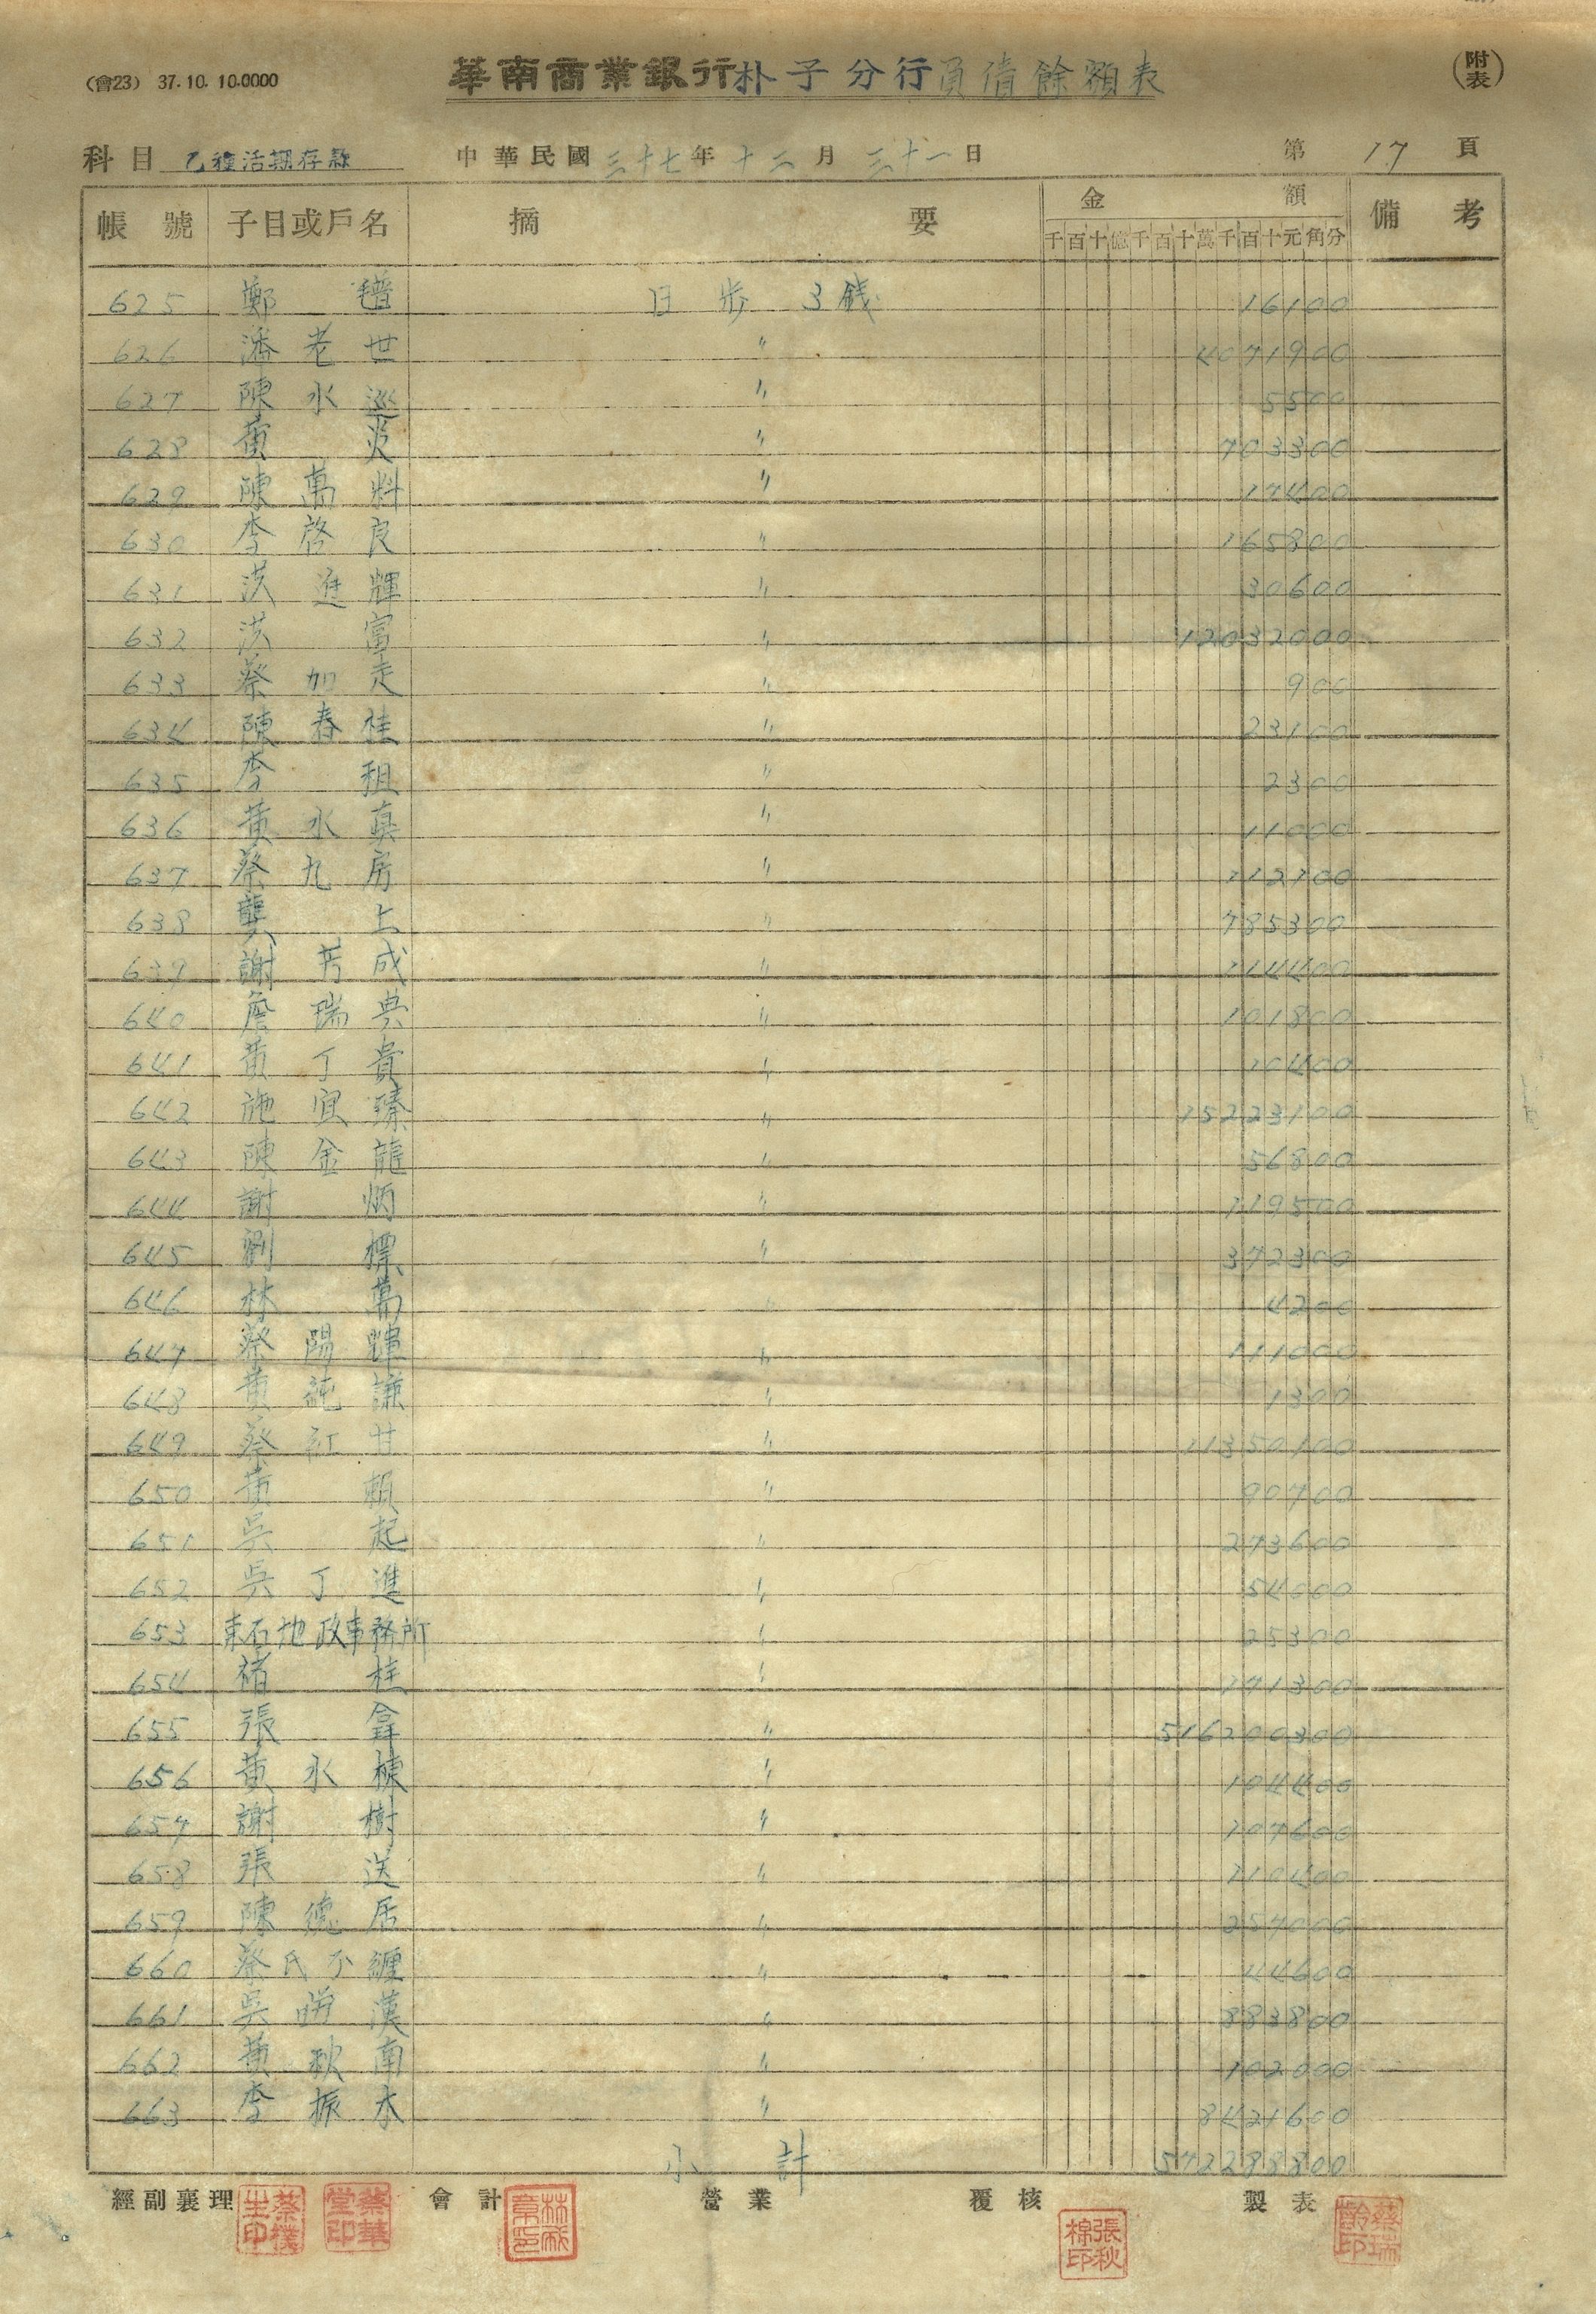 (會23) 37.10.10.0000 華南商業銀行朴子分行負債餘額表 (附表)
科目 乙種活期存款 中華民國三十七年十二月三十一日 第17頁
帳號 子目或戶名 摘要 金額 備考
千百十億千百十萬千百十元角分
625 鄭 日步3錢 16100
626 潘老世 〃 4071900
627 陳水巡 〃 5500
628 黃炎 〃 703300
629 陳萬料 〃 17400
630 李啓良 〃 165800
631 洪進輝 〃 30600
632 洪富 〃 12032000
633 蔡加走 〃 900
634 陳春桂 〃 23100
635 李租 〃 2300
636 黃水真 〃 11000
637 蔡九房 〃 112100
638 龔上 〃 785300
639 謝芳成 〃 114400
640 詹瑞典 〃 101800
641 黃丁貴 〃 10400
642 施宜臻 〃 15223100
643 陳金龍 〃 56800
644 謝炳 〃 119500
645 劉標 〃 372300
646 林萬 〃 4200
647 蔡陽輝 〃 111000
648 黃純謙 〃 1300
649 蔡紅甘 〃 11350100
650 黃賴 〃 90700
651 吳起 〃 273600
652 吳丁進 〃 54000
653 東石地政事務所 〃 25300
654 褚桂 〃 171300
655 張拿 〃 516200300
656 黃水棟 〃 104400
657 謝樹 〃 107600
658 張送 〃 110400
659 陳德居 〃 257000
660 蔡氏不纏 〃 44600
661 吳漢 〃 883800
662 黃秋南 〃 102000
663 李振木 〃 8421600
小計 572288800
經副襄理 會計 營業 覆核 製表
蔡樸生印 蔡華堂印 林成章印 張秋棉印 蔡瑞齡印